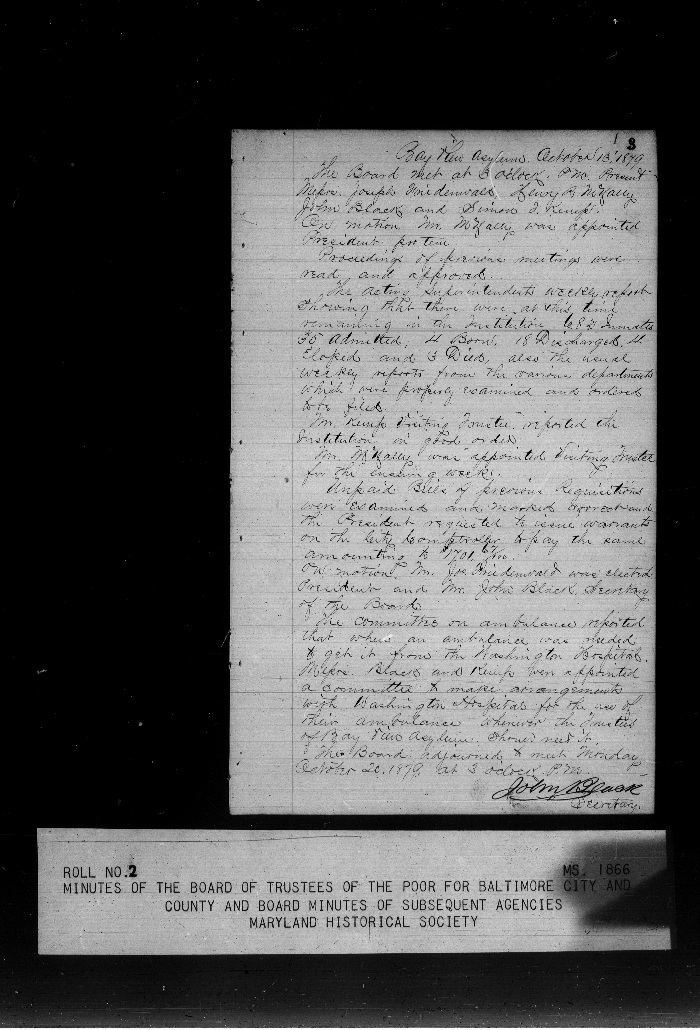 3
Bay View Asylum October 13, 1879
The Board met at 3 oclock P.M. Present
Messrs. Joseph Friedenwald, Henry R. McNally
John Black and Simon J. Kemp.
On motion Mr. McNally was appointed
President pro tem
Proceedings of previous meetings were
read and approved.
The acting Superintendents weekly report
showing that there were at this time
remaining in the Institution inmates
35 Admitted, 4 Born, 18 Discharged, 4
Eloped and 3 Died, also the usual
weekly reports from the various departments
which were properly examined and ordered
to be filed.
Mr. Kemp Visiting Trustee, reported the
Institution in good order.
Mr. McNally was appointed Visiting Trustee
for the ensuing week.
Unpaid Bills of previous Requisitions
were examined and marked correct and
the President requested to issue warrants
on the City Comptroller to pay the same
amounting to $1701.
On motion Mr. Jos Friedenwald was elected
President and Mr. John Black, Secretary
of the Board.
The Committee on ambulance reported
that when an ambulance was needed
to get it from the Washington Hospital.
Messrs. Black and Kemp were appointed
a committee to make arrangements
with Washington Hospital for the use of
their ambulance whenever the Trustees
of Bay View Asylum should need it.
The Board adjourned to meet Monday
October 20, 1879, at 3 oclock P.M.
John Black
Secretary
ROLL NO.2
MS. 1866
MINUTES OF THE BOARD OF TRUSTEES OF THE POOR FOR BALTIMORE CITY AND
COUNTY AND BOARD MINUTES OF SUBSEQUENT AGENCIES
MARYLAND HISTORICAL SOCIETY